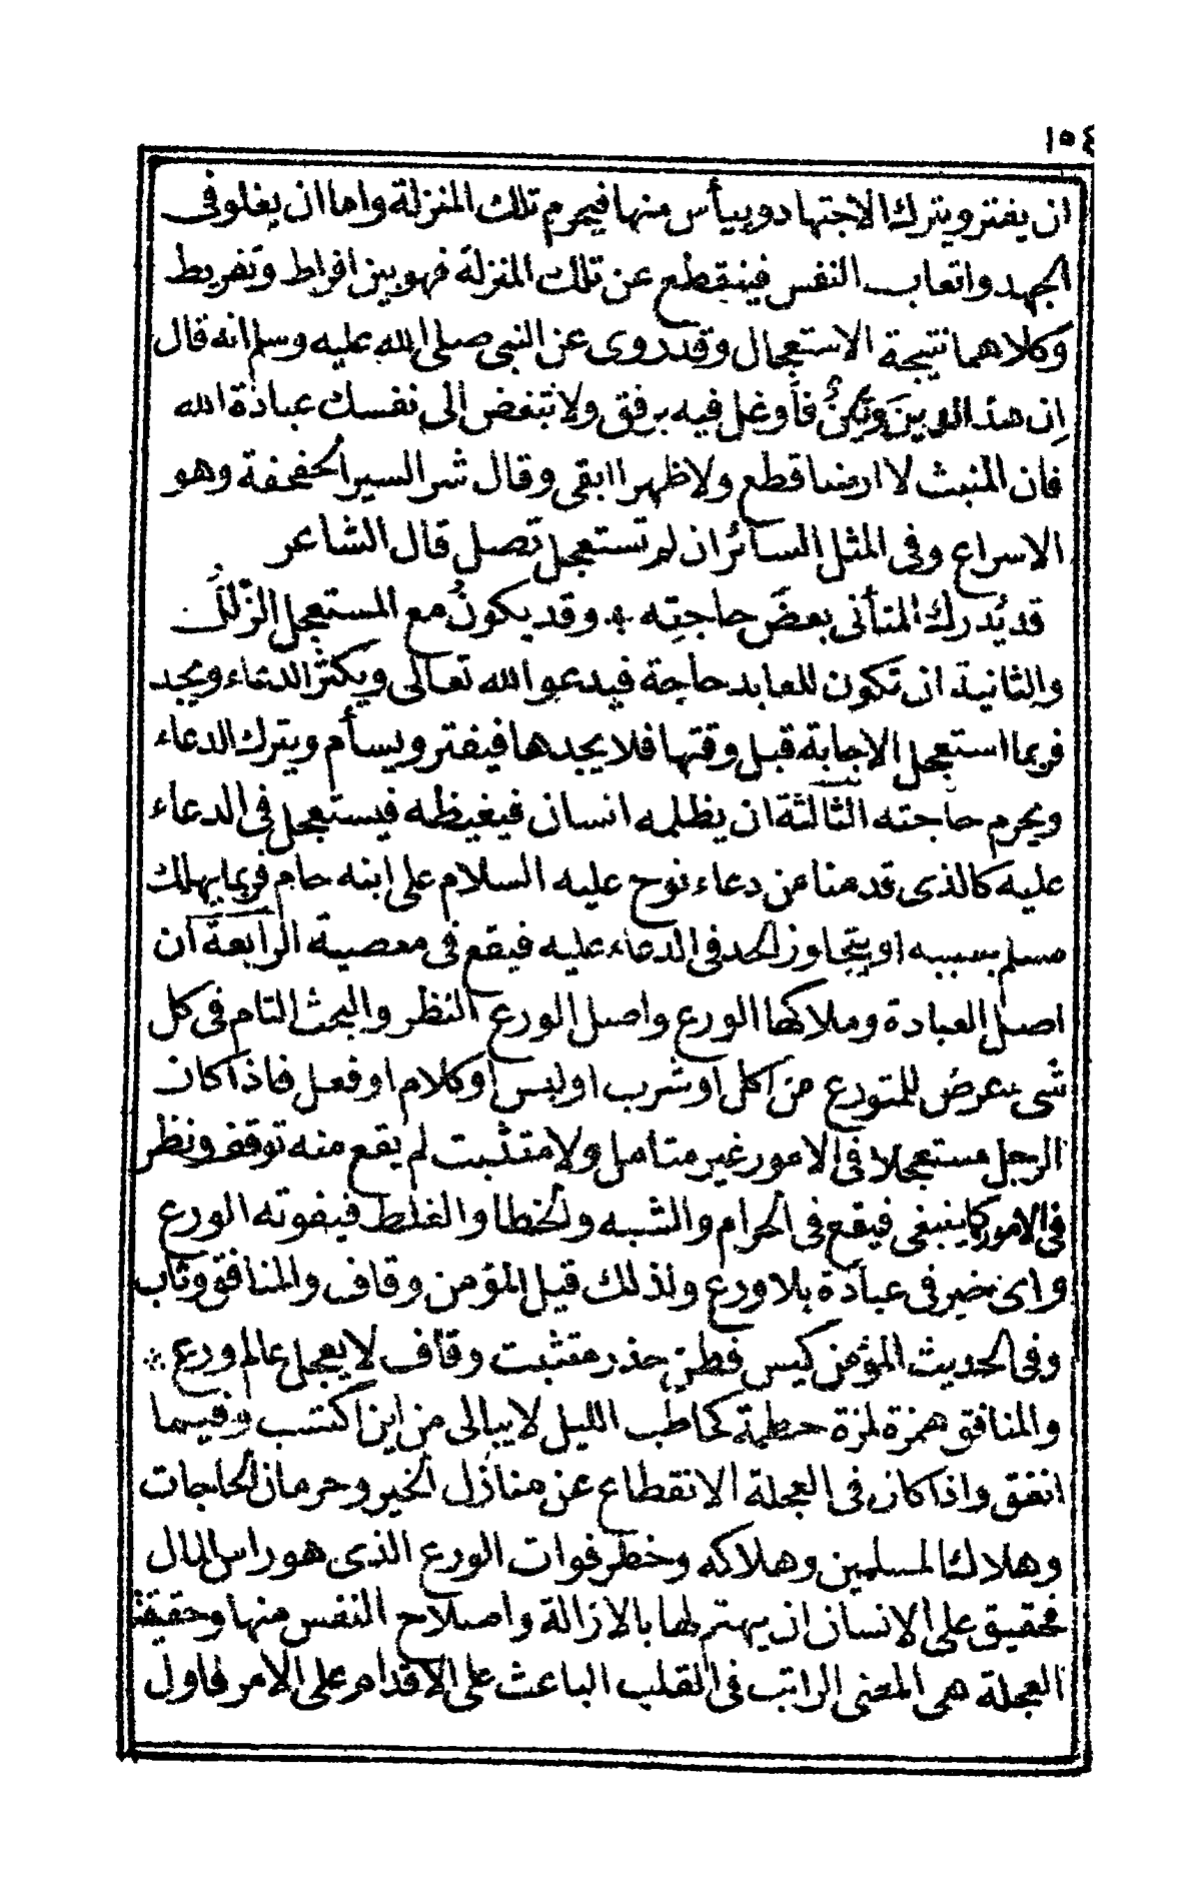 ١٥٤
ان يفتر ويترك الاجتهاد وييأس منها فيحرم تلك المنزلة واما ان يغلو فى
الجهد واتعاب النفس فينقطع عن تلك المنزلة فهو بين افراط وتفريط
وكلاهما نتيجة الاستعجال وقد روى عن النبى صلى الله عليه وسلم انه قال
إن هذا الدين متين فأوغل فيه برفق ولا تبغض الى نفسك عبادة الله
فان المنبت لا ارضا قطع ولا ظهرا ابقى وقال شر السير الحفحفة وهو
الاسراع وفى المثل السائر ان لم تستعجل تصل قال الشاعر
قد يُدرك المتأنى بعضَ حاجتِه ٭ وقد يكونُ مع المستعجل الزّلَلُ
والثانية ان تكون للعابد حاجة فيدعو الله تعالى ويكثر الدعاء ويجد
فربما استعجل الاجابة قبل وقتها فلا يجدها فيفتر ويسأم ويترك الدعاء
ويحرم حاجته الثالثة ان يظلمه انسان فيغيظه فيستعجل فى الدعاء
عليه كالذى قدمنا من دعاء نوح عليه السلام على ابنه حام فربما يهلك
مسلم بسببه او يتجاوز الحد فى الدعاء عليه فيقع فى معصية الرابعة ان
اصل العبادة وملاكها الورع واصل الورع النظر والبحث التام فى كل
شى عرض للمتورع من اكل او شرب او لبس او كلام او فعل فاذا كان
الرجل مستعجلا فى الامور غير متامل ولا متثبت لم يقع منه توقف ونظر
فى الامور كما ينبغى فيقع فى الحرام والشبه والخطا والغلط فيفوته الورع
واى خير فى عبادة بلا ورع ولذلك قيل المؤمن وقاف والمنافق وثاب
وفى الحديث المؤمن كيس فطن حذر متثبت وقاف لا يعجل عالم ورع ∴
والمنافق همزة لمزة حطمة كحاطب الليل لا يبالى من اين اكتسب وفيما
انفق واذا كان فى العجلة الانقطاع عن منازل الخير وحرمان الحاجات
وهلاك المسلمين وهلاكه وخطر فوات الورع الذى هو راس المال
فحقيق على الانسان ان يهتم لها بالازالة واصلاح النفس منها وحقيقة
العجلة هى المعنى الراتب فى القلب الباعث على الاقدام على الامر فاول